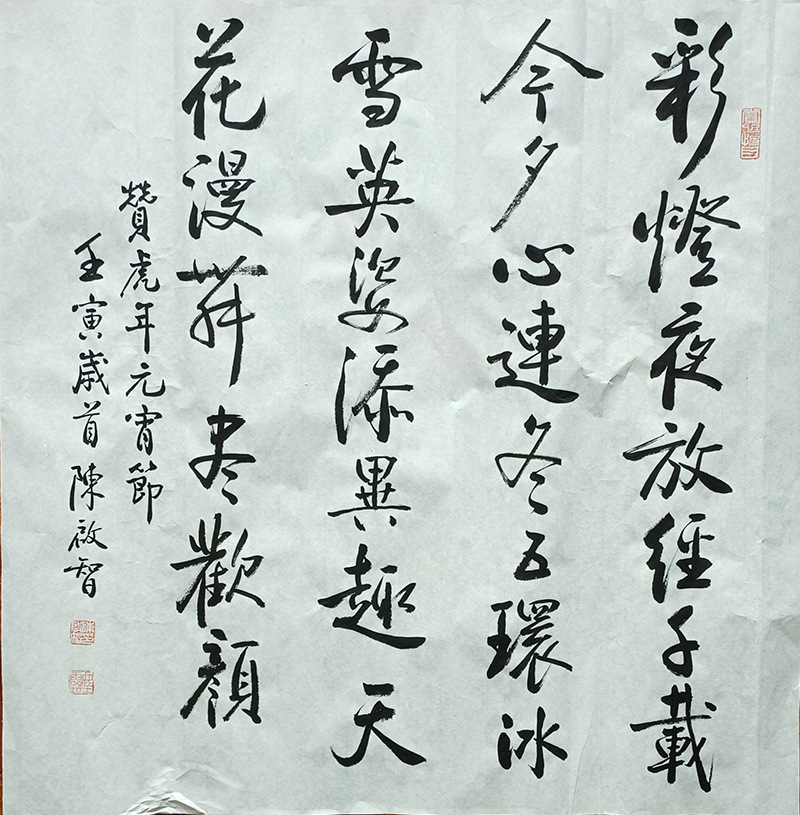 彩燈夜放經千載
今夕心連冬五環冰
雪英姿添異趣天
花漫舞尽歡顏
贊虎年元宵節
壬寅歲首陳啟智